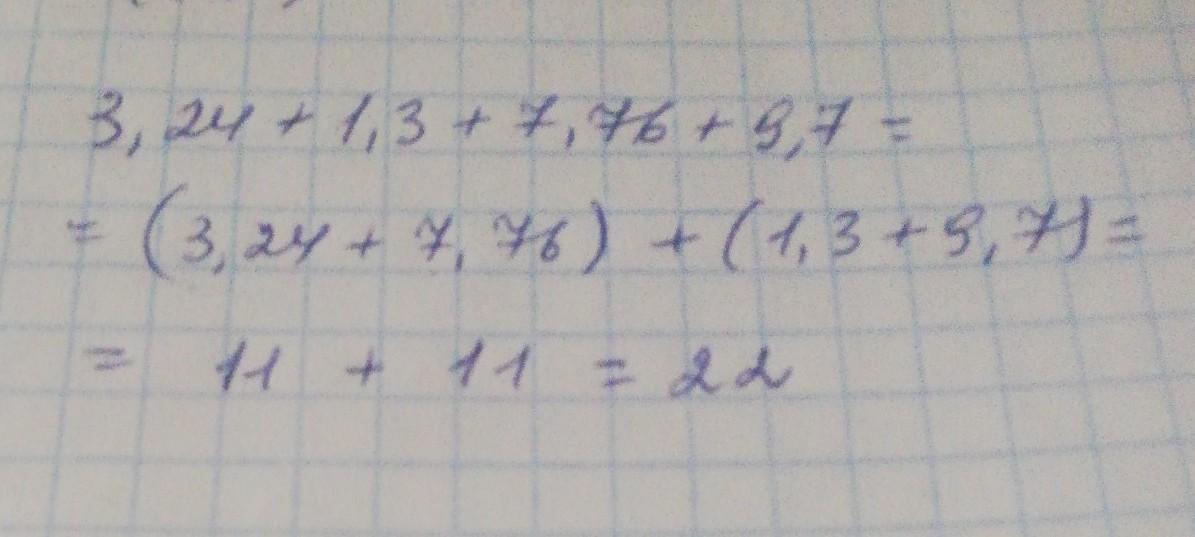 3,24 + 1,3 + 7,76 + 9,7 =
= (3,24 + 7,76) + (1,3 + 9,7) =
= 11 + 11 = 22